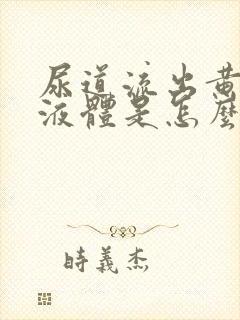 尿道流出黃
液體是怎麼
時義杰